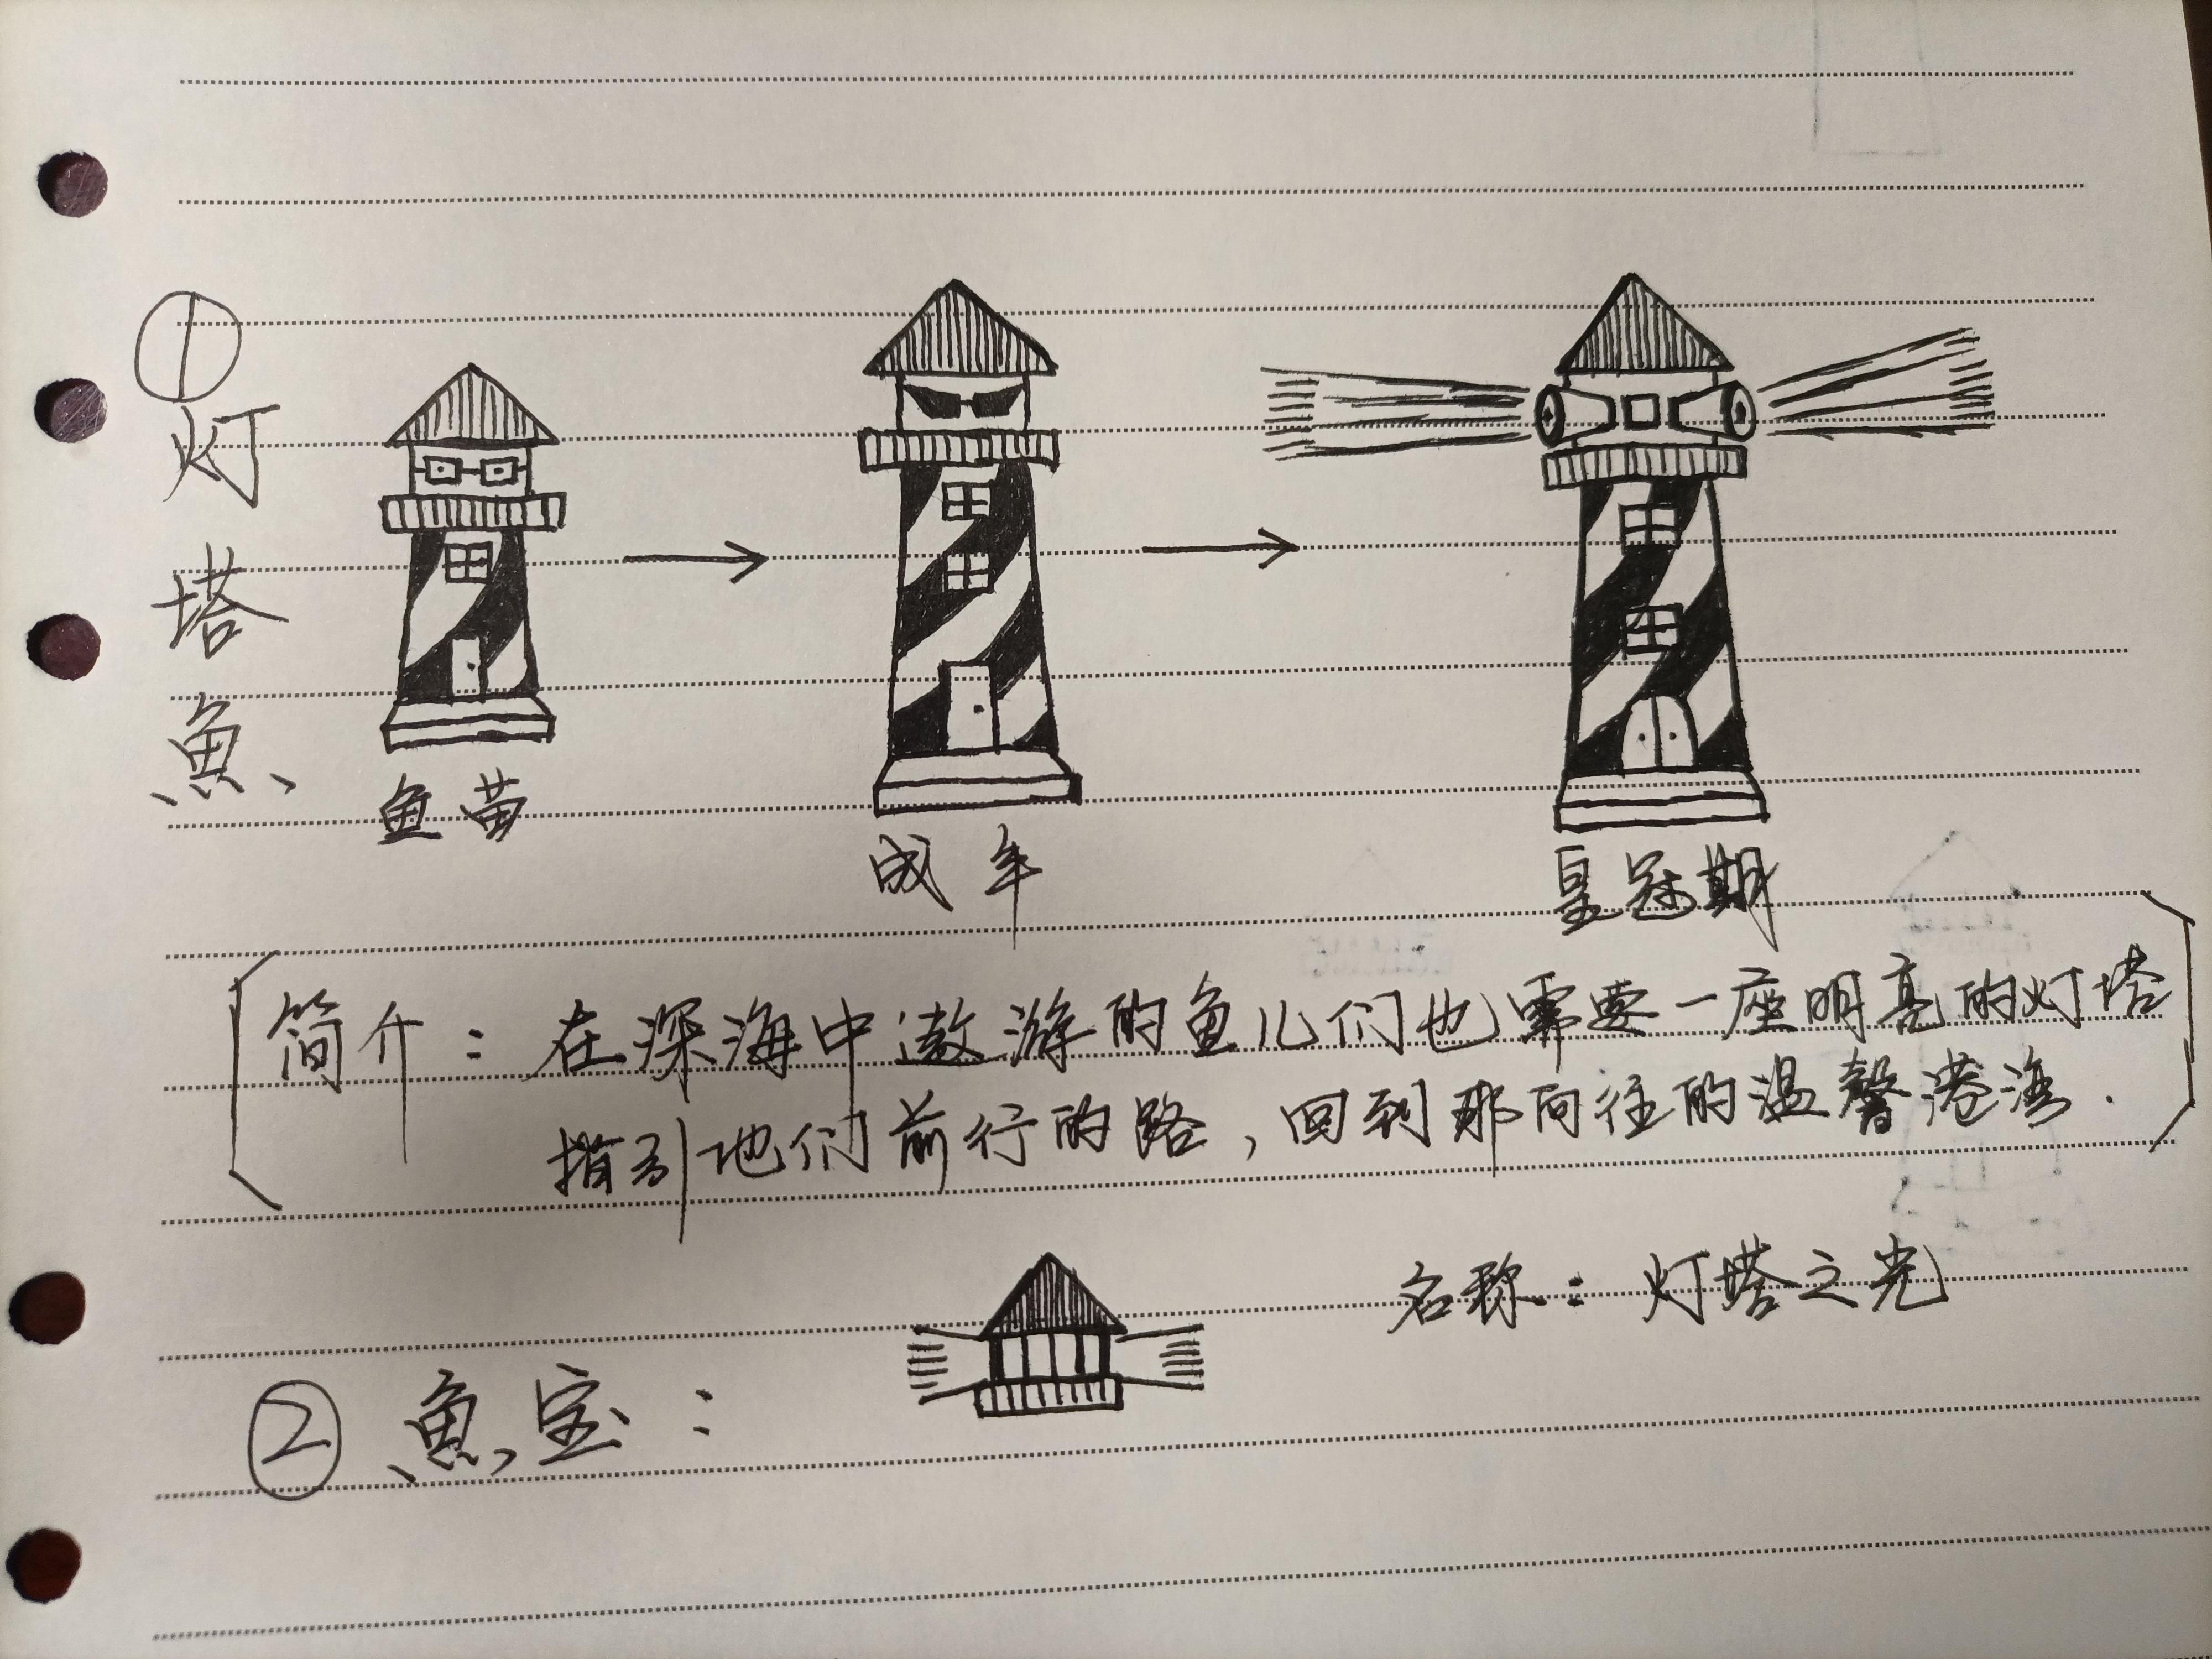 ①
灯塔魚
鱼苗
成年
皇冠期
简介：在深海中遨游的鱼儿们也需要一座明亮的灯塔
指引他们前行的路，回到那向往的温馨港湾.
名称：灯塔之光
②魚宝：